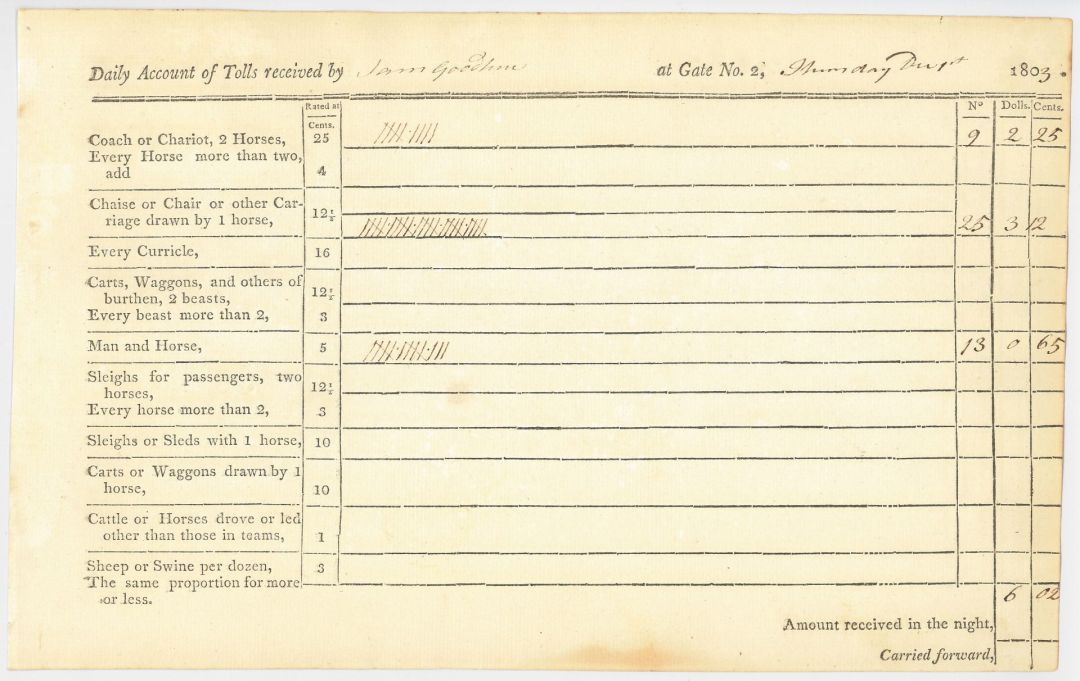 Daily Account of Tolls received by Sam Goodhue at Gate No. 2, Thursday Decr 1st 1803.
Rated at Cents. No Dolls. Cents.
Coach or Chariot, 2 Horses, 25 9 2 25
Every Horse more than two,
add 4
Chaise or Chair or other Car-
riage drawn by 1 horse, 12½ 25 3 12
Every Curricle, 16
Carts, Waggons, and others of
burthen, 2 beasts, 12½
Every beast more than 2, 3
Man and Horse, 5 13 0 65
Sleighs for passengers, two
horses, 12½
Every horse more than 2, 3
Sleighs or Sleds with 1 horse, 10
Carts or Waggons drawn by 1
horse, 10
Cattle or Horses drove or led
other than those in teams, 1
Sheep or Swine per dozen, 3
The same proportion for more
or less. 6 02
Amount received in the night,
Carried forward,